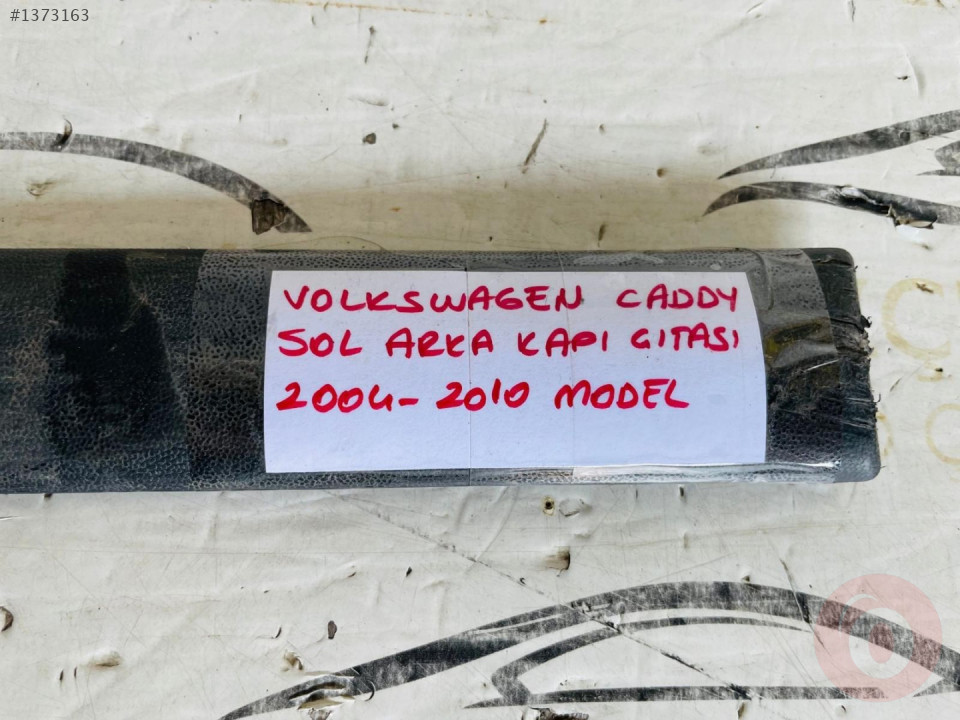 #1373163
VOLKSWAGEN CADDY
SOL ARKA KAPI CITASI
2004-2010 MODEL